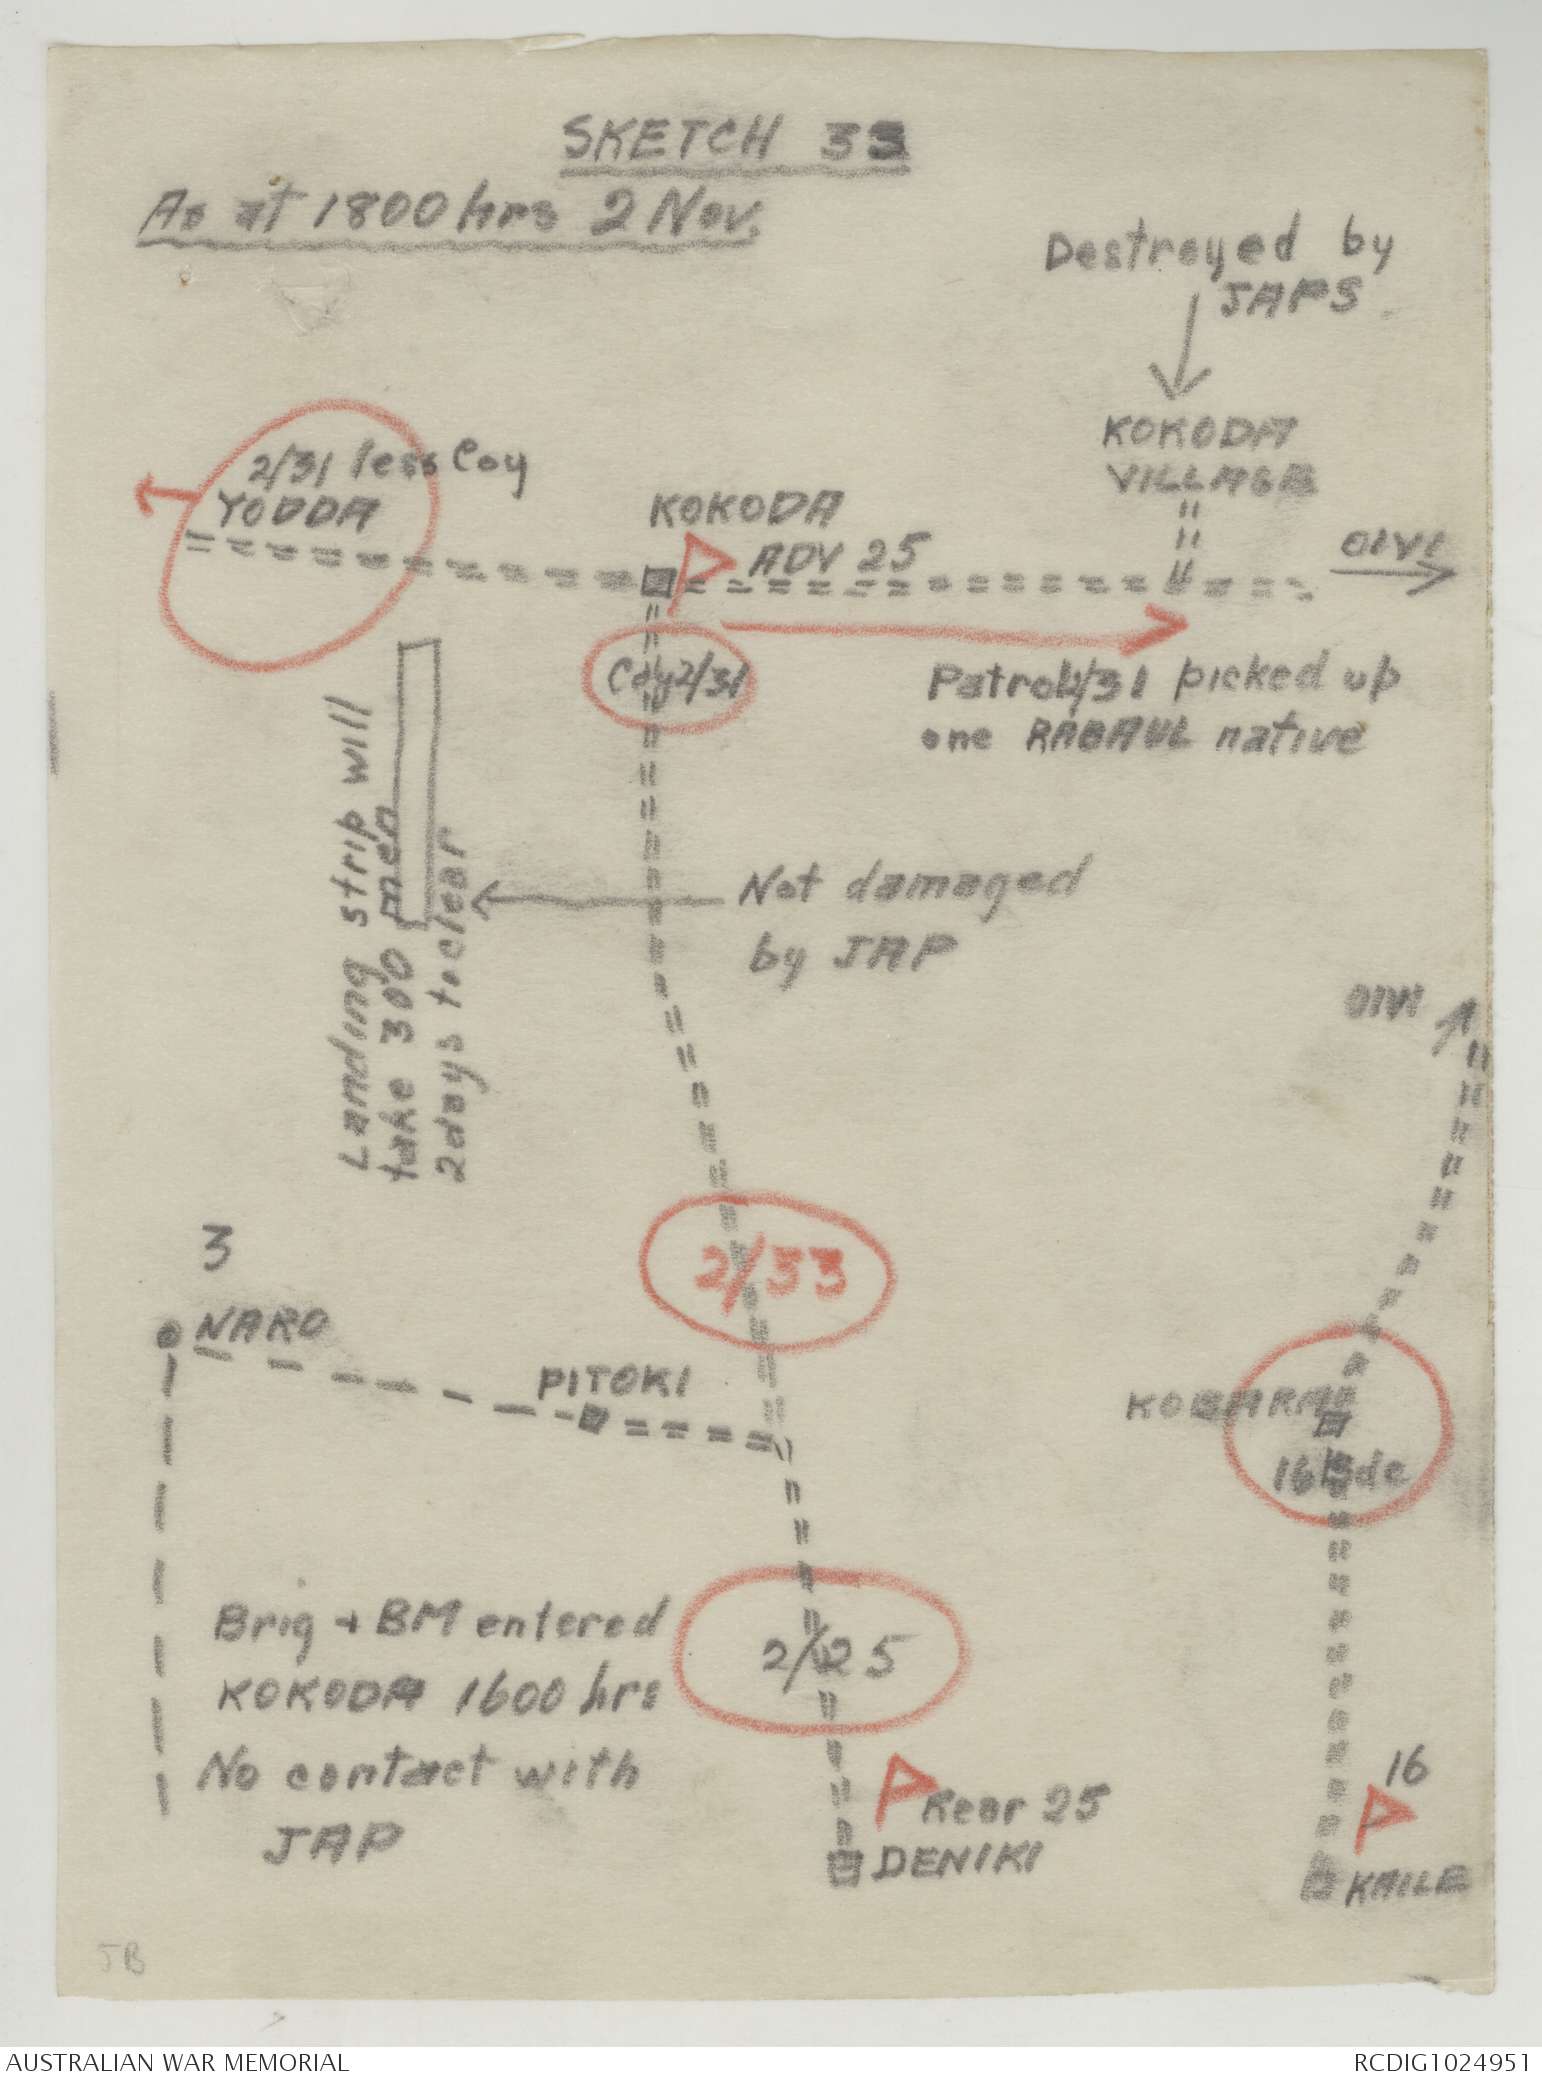 SKETCH 33
As at 1800 hrs 2 Nov.
Destroyed by
JAPS
KOKODA
VILLAGE
2/31 less Coy
YODDA
KOKODA
ADV 25
OIVI
Coy 2/31
Patrol 2/31 picked up
one RABAUL native
Landing strip will
take 300 men
2 days to clear
Not damaged
by JAP
OIVI
3
NARO
2/33
PITOKI
KOBARA
16 Bde
Brig + BM entered
KOKODA 1600 hrs
No contact with
JAP
2/25
Rear 25
DENIKI
16
KAILE
JB
AUSTRALIAN WAR MEMORIAL
RCDIG1024951